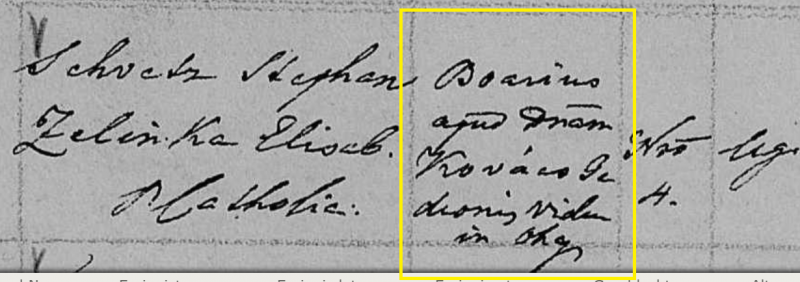 Schvetz Stephan
Zelinka Elisab.
R Catholic:
Boarius
apud Dnam
Kovács Ge
deonis vidu
in
Nro
4.